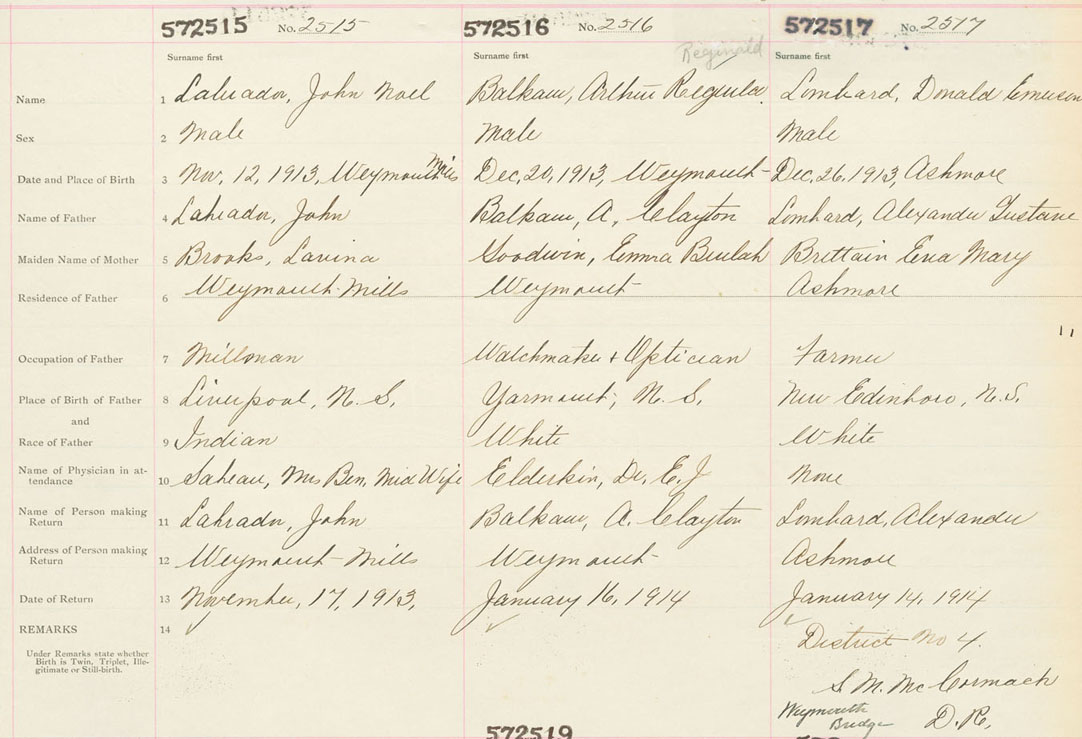 572515 No. 2515 572516 No. 2516 572517 No. 2517
Surname first Surname first Reginald Surname first
Name 1 Labrador, John Noel Balkam, Arthur Lombard, Donald Emerson
Sex 2 Male Male Male
Date and Place of Birth 3 Nov, 12, 1913, Weymouth Mills Dec, 20, 1913, Weymouth- Dec, 26, 1913, Ashmore
Name of Father 4 Labrador, John Balkam, A, Clayton Lombard, Alexander Gustave
Maiden Name of Mother 5 Brooks, Lavina Goodwin, Emma Beulah Brittain Ena Mary
Residence of Father 6 Weymouth Mills Weymouth Ashmore
11
Occupation of Father 7 Millman Watchmaker + Optician Farmer
Place of Birth of Father 8 Liverpool, N. S. Yarmouth, N. S. New Edinboro, N.S.
and
Race of Father 9 Indian White White
Name of Physician in at-
tendance 10 Mrs Ben, Mid Wife Elderkin, Dr, E. J None
Name of Person making
Return 11 Labrador, John Balkam, A. Clayton Lombard, Alexander
Address of Person making
Return 12 Weymouth Mills Weymouth Ashmore
Date of Return 13 November, 17, 1913, January 16, 1914 January 14, 1914
REMARKS 14 District No 4.
Under Remarks state whether
Birth is Twin, Triplet, Ille-
gitimate or Still-birth.
S. M. McCormack
Weymouth
Bridge D.R.
572519